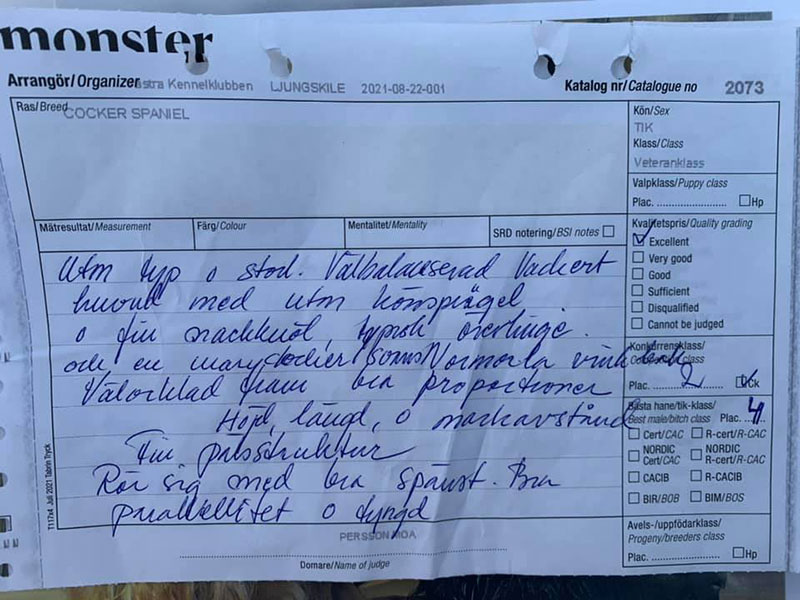 monster
Arrangör/Organizer stra Kennelklubben LJUNGSKILE 2021-08-22-001 Katalog nr/Catalogue no 2073
Ras/Breed COCKER SPANIEL
Kön/Sex
TIK
Klass/Class
Veteranklass
Valpklass/Puppy class
Plac. Hp
Mätresultat/Measurement Färg/Colour Mentalitet/Mentality SRD notering/BSI notes
Kvalitetspris/Quality grading
Excellent
Very good
Good
Sufficient
Disqualified
Cannot be judged
Konkurrensklass/
class
Plac. 2 Ck
Bästa hane/tik-klass/
Best male/bitch class Plac. 4
Cert/CAC R-cert/R-CAC
NORDIC Cert/CAC NORDIC R-cert/R-CAC
CACIB R-CACIB
BIR/BOB BIM/BOS
Avels-/uppfödarklass/
Progeny/breeders class
Plac. Hp
Utm typ o stol. Välbalanserad Vackert
huvud med utm könsprägel
o fin nackknöl, typisk överlinje.
och en
Välvinklad fram bra proportioner
Höjd, längd, o markavstånd
Fin pälsstruktur
Rör sig med bra spänst. Bra
parallellitet o tyngd
PERSSON MOA
Domare/Name of judge
T117x4 Juli 2021 Tabrin Tryck